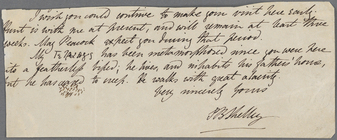 I wish you could contrive to make your visit here early.
Hunt is with me at present, and will remain at least three
weeks. May Peacock expect you during that period.
My has been metamorphosed since you were here
into a featherless biped; he lives, and inhabits his father's house,
but he has ceased to creep. He walks with great alacrity
Very sincerely yours
PBShelley